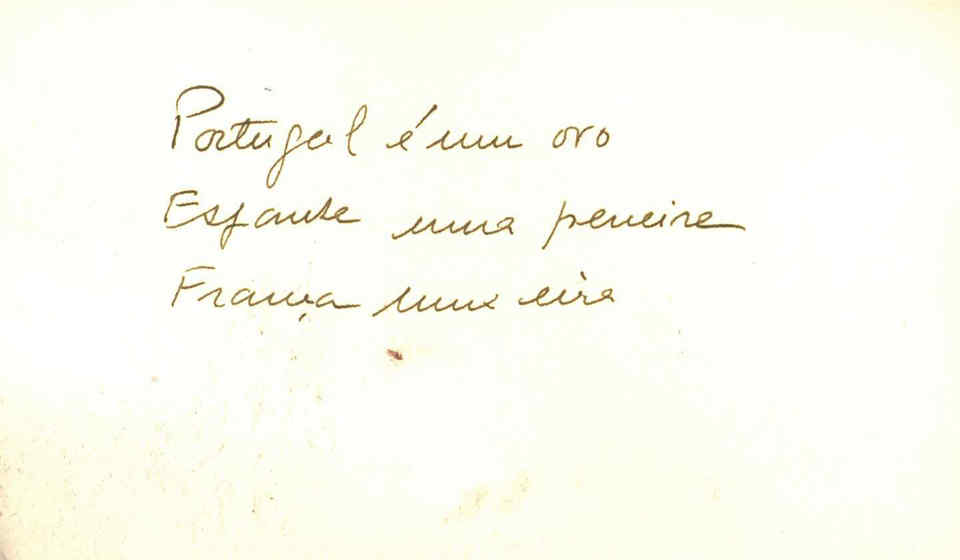 Portugal é um ovo
Espanha uma peneira
França uma eira